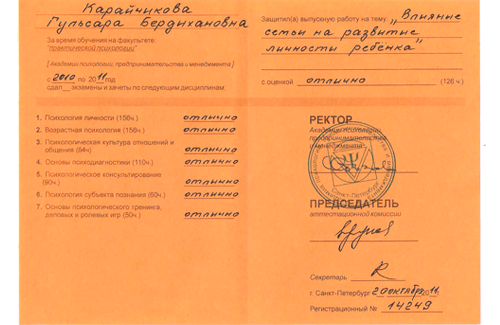 Карайчикова
Гульсара Бердыхановна
За время обучения на факультете:
"практической психологии"
[Академии психологии, предпринимательства и менеджмента]
с 2010 по 2011 год
сдал__ экзамены и зачеты по следующим дисциплинам:
1. Психология личности (156ч.) отлично
2. Возрастная психология (156ч.) отлично
3. Психологическая культура отношений и
общения (94ч) отлично
4. Основы психодиагностики (110ч.) отлично
5. Психологическое консультирование
(90ч.) отлично
6. Психология субъекта познания (60ч.) отлично
7. Основы психологического тренинга,
деловых и ролевых игр (50ч.) отлично
Защитил(а) выпускную работу на тему „Влияние
семьи на развитие
личности ребёнка"
с оценкой отлично (126 ч.)
РЕКТОР
Академии психологии,
предпринимательства
и менеджмента
Санкт-Петербург
ПРЕДСЕДАТЕЛЬ
аттестационной комиссии
Секретарь
г. Санкт-Петербург 2 октября 2011
Регистрационный № 14249